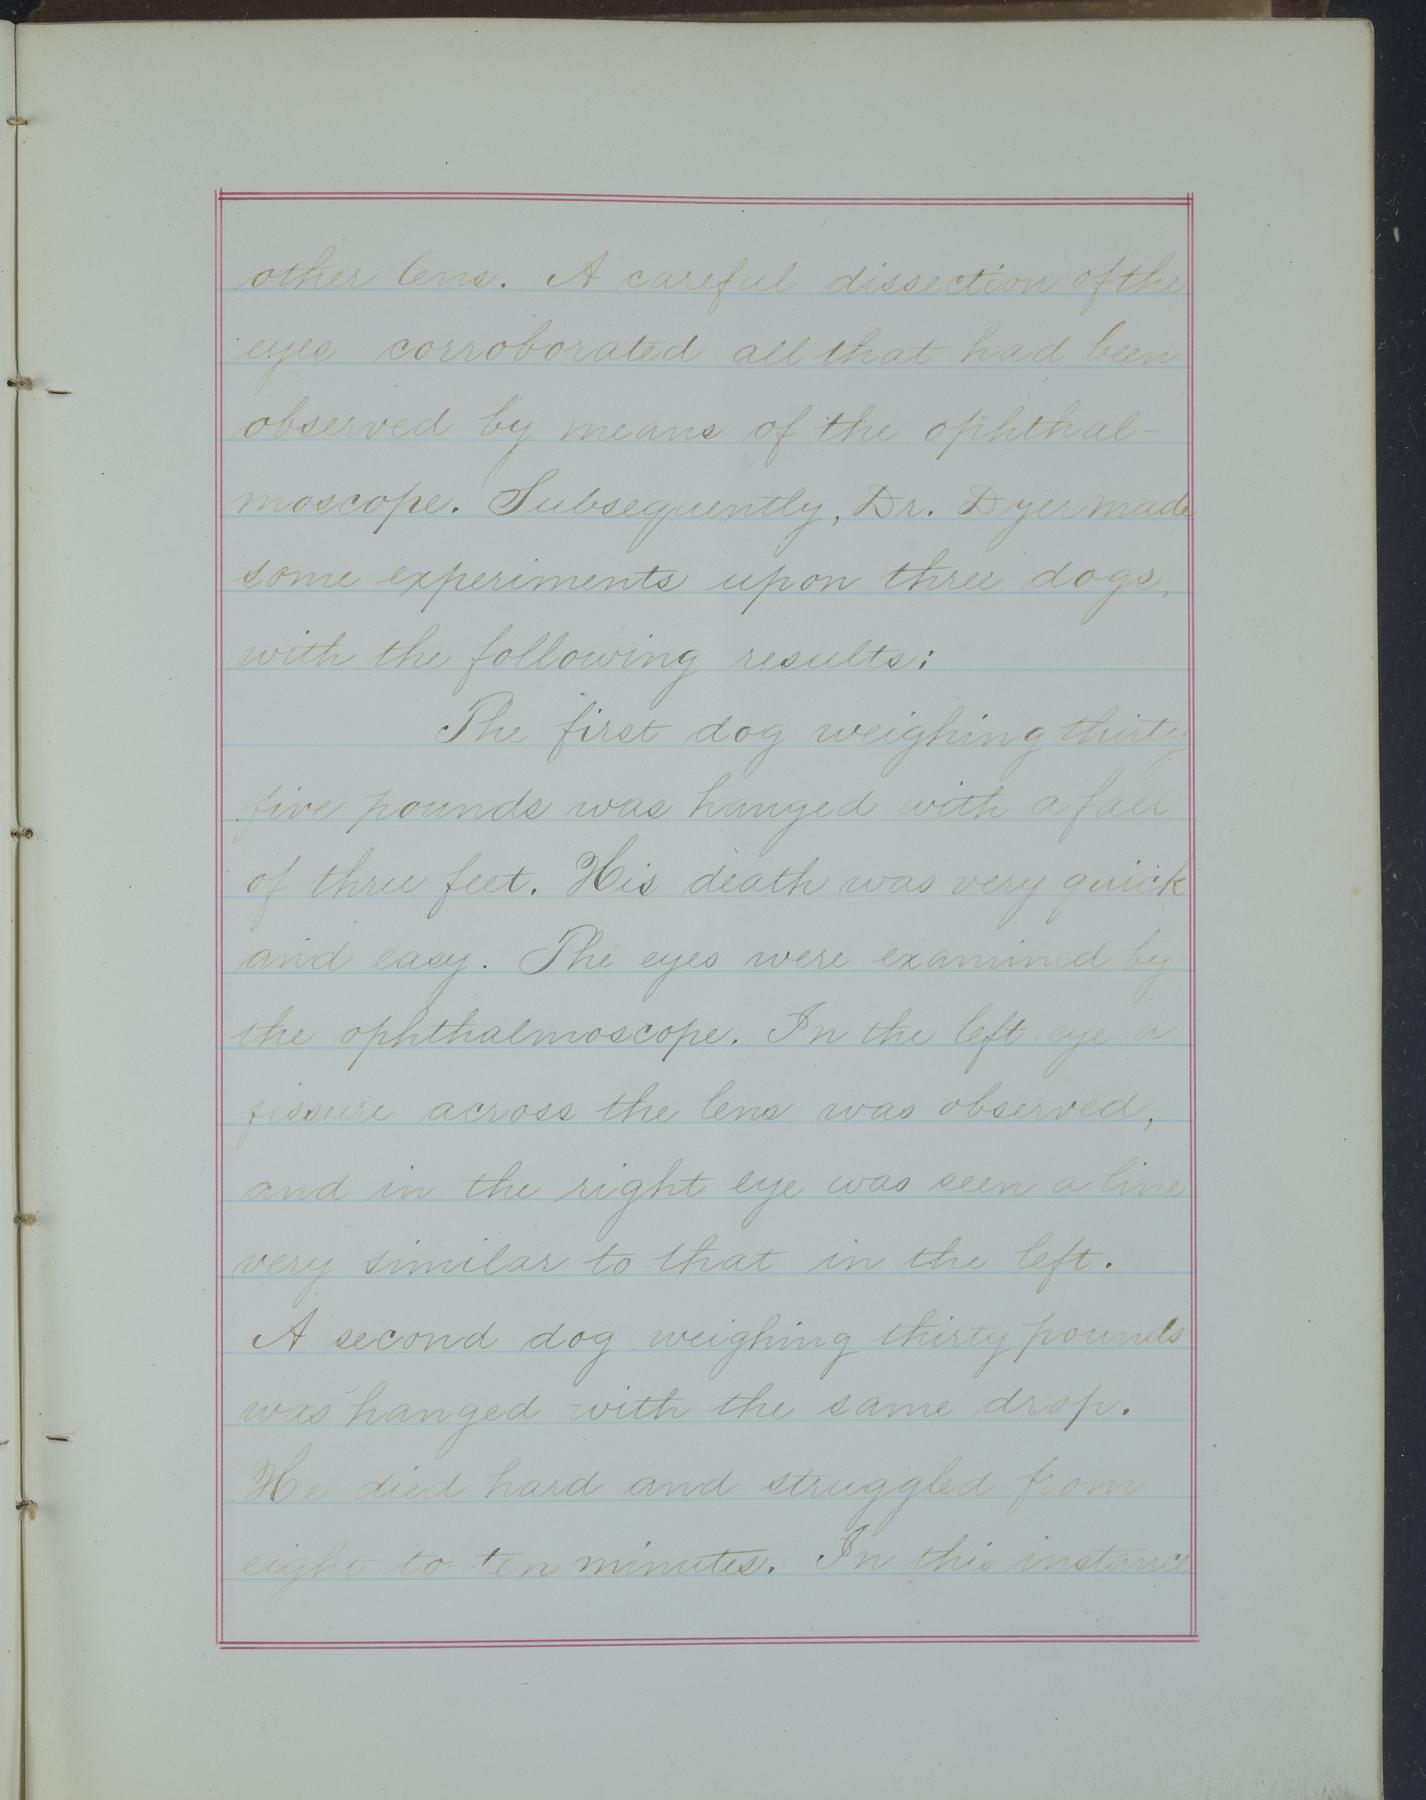 other lens. A careful dissection of the
eyes corroborated all that had been
observed by means of the ophthal-
moscope. Subsequently, Dr. Dyer made
some experiments upon three dogs,
with the following results:
The first dog weighing thirty
five pounds was hanged with a fall
of three feet. His death was very quick
and easy. The eyes were examined by
the ophthalmoscope. In the left eye a
fissure across the lens was observed,
and in the right eye was seen a line
very similar to that in the left.
A second dog weighing thirty pounds
was hanged with the same drop.
He died hard and struggled from
eight to ten minutes. In this instance